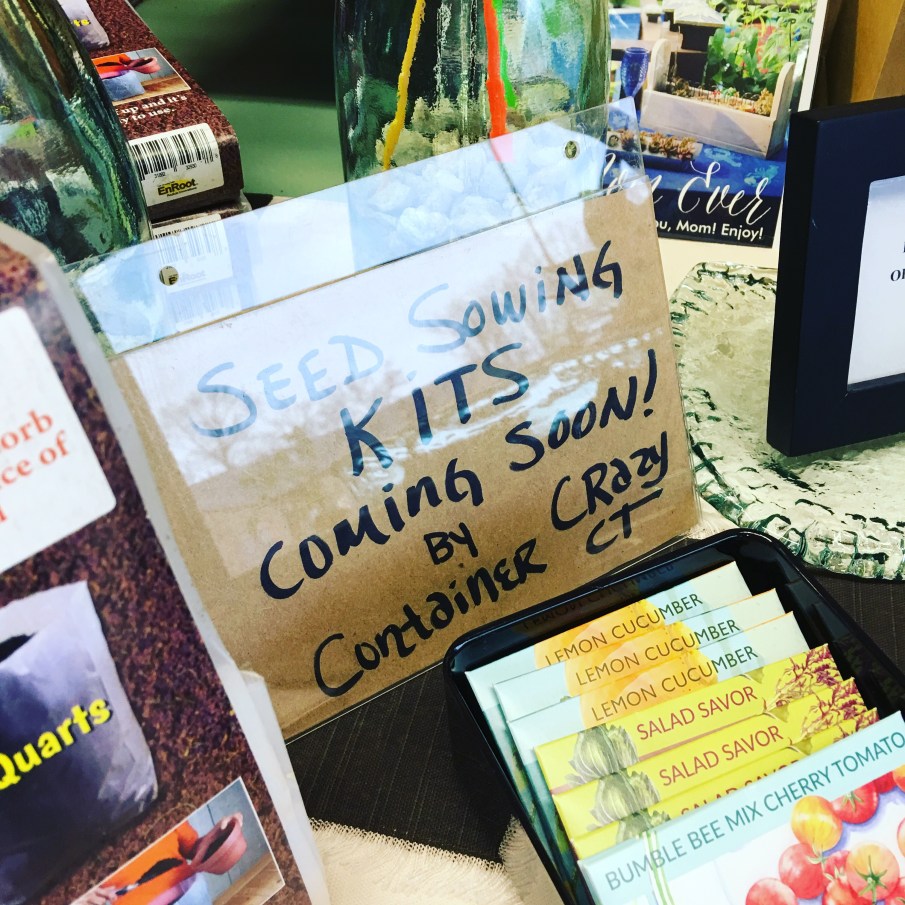 up and it's
y to use.
EnRoot
Ever
ou, Mom! Enjoy!
SEED SOWING
KITS
COMING SOON!
BY CRAZY
CONTAINER CT
orb
ce of
Quarts
LEMON CUCUMBER
LEMON CUCUMBER
LEMON CUCUMBER
SALAD SAVOR
SALAD SAVOR
SALAD SAVOR
BUMBLE BEE MIX CHERRY TOMATO